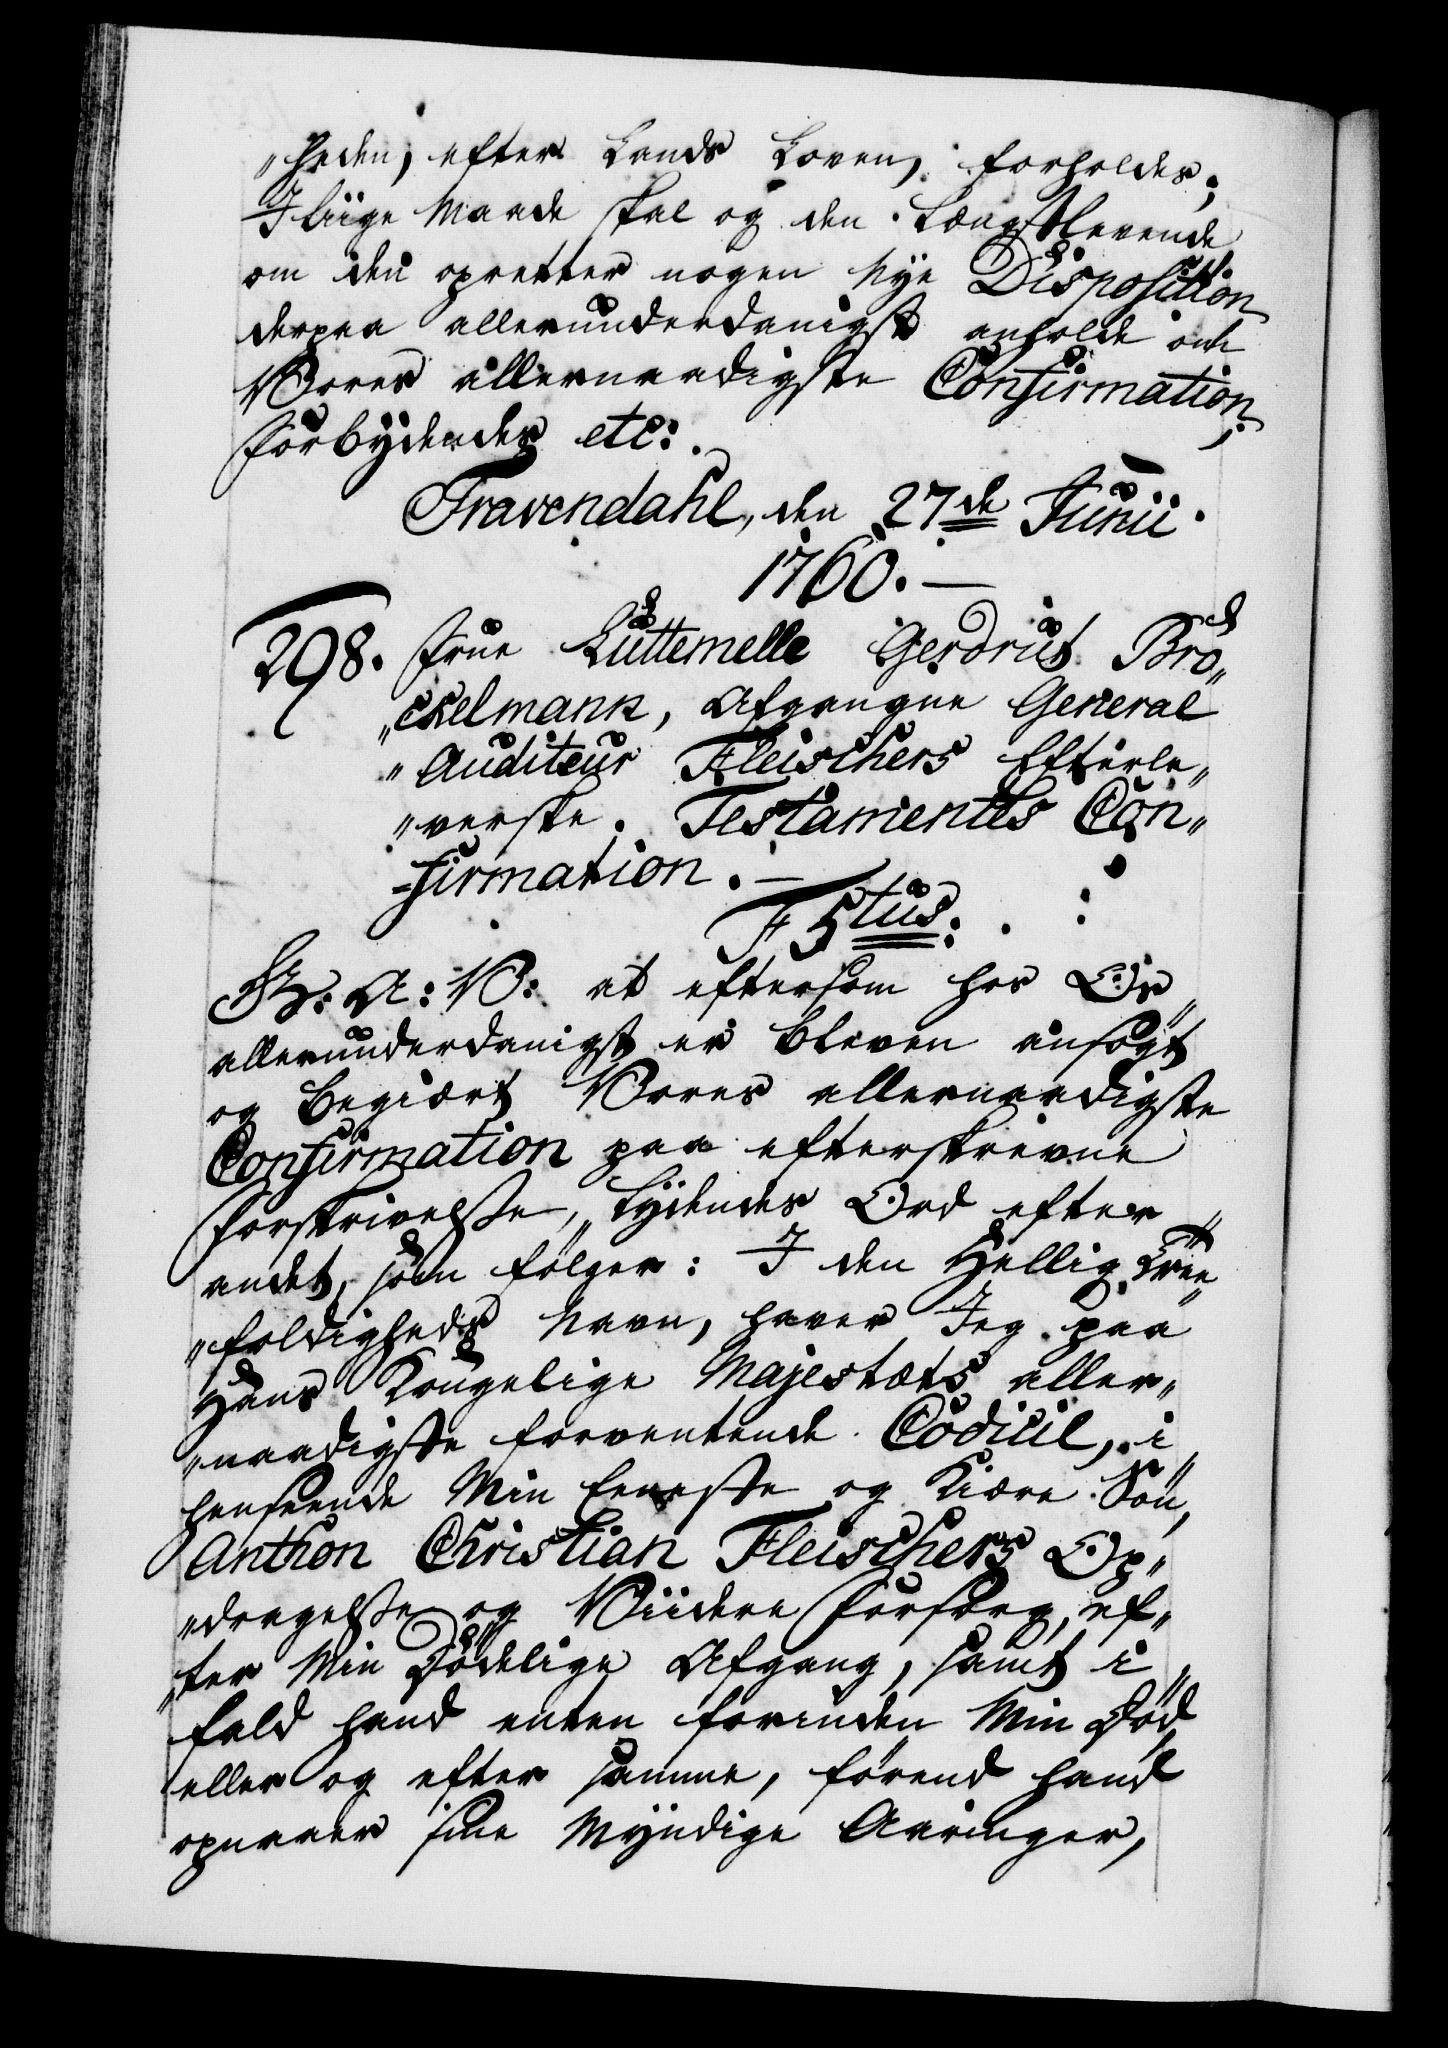 "heden, efter Lands Loven, forholdes;
I liige Maade skal og den Længstlevende
om den opretter nogen Nye Disposition
derpaa allerunderdanigst anholde om
Vores allernaadigste Confirmation,
Forbydendes etc:.
Fravendahl, den 27de Junii
1760. —
298. Frue Luttemelle Gerdrut Bro„
„ckelmann, Afgangne General
„Auditeur Fleischers Efterle„
„verske. Testamentes Con„
=firmation. —
F 5tus:
G: A: V: at eftersom hos Os
allerunderdanigst er bleven ansøgt
og begiært Vores allernaadigste
Confirmation paa efterskrevne
Forskrivelse, lydendes Ord efter
andet, som følger: I den Hellig Tree„
„foldigheds Navn, haver Jeg paa
Hans Kongelige Majestæts aller„
„naadigste forventende Codicil, i
henseende Min Eeneste og Kiære Søn,
Anthon Christian Fleischers Op„
„dragelse og Viidere Forsorg, ef„
„ter Min Dødelige Afgang, samt i
fald hand enten forinden Min Død,
eller og efter samme, førend hand
opnaaer sine Myndige Aaringer,